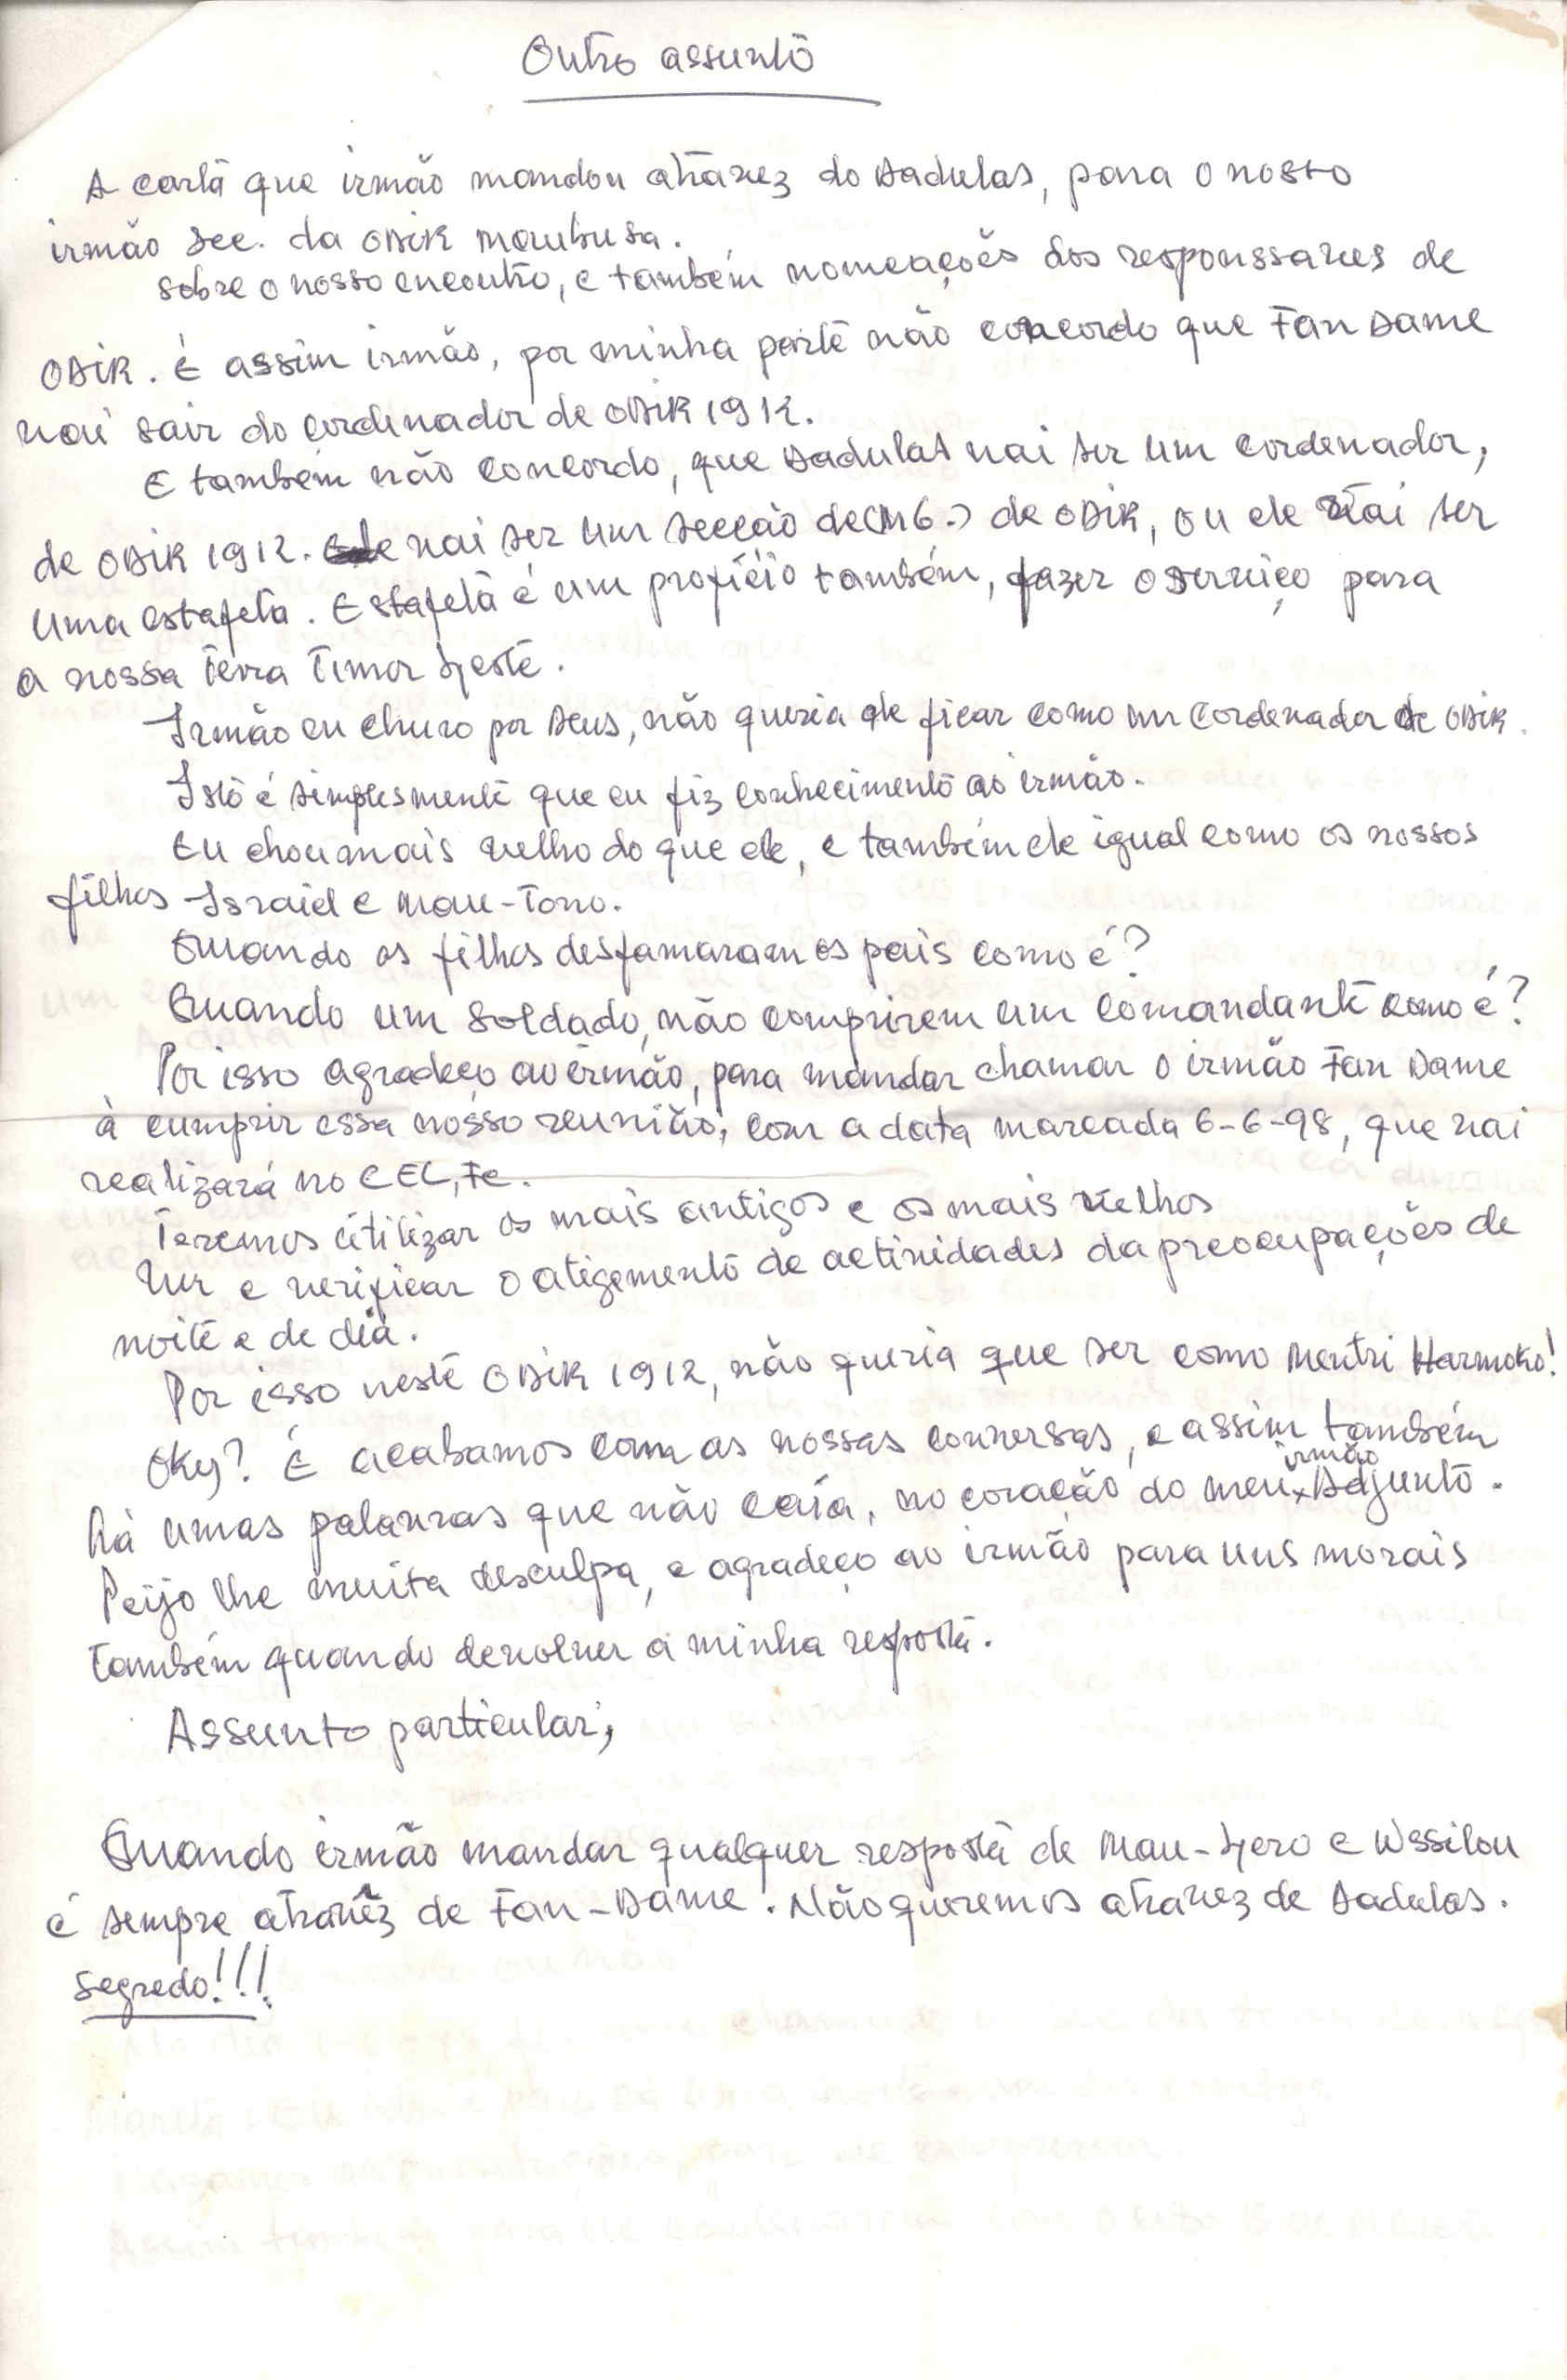 Outro assunto
A carta que irmão mandou atravez do Dadulas, para o nosso
irmão Sec. da ODIR Maubusa.
sobre o nosso encontro, e também nomeações dos responssaves de
ODIR. É assim irmão, por minha parte não concordo que Fan Dame
vai sair do cordenador de ODIR 1912.
E também não concordo, que Dadulas vai ser um cordenador,
de ODIR 1912. Ele vai ser um secção de (M6.) de ODIR, ou ele vai ser
uma estafeta. Estafeta é um proficio também, fazer o serviço para
a nossa Terra Timor Leste.
Irmão eu churo por Deus, não queria ele ficar como um cordenador de ODIR.
Isto é simplesmente que eu fiz conhecimento ao irmão.
Eu chou mais velho do que ele, e também ele igual como os nossos
filhos Israiel e Mau-Tono.
Quando os filhos desfamaram os pais como é?
Quando um soldado, não comprirem um comandante como é?
Por isso agradeço ao irmão, para mandar chamar o irmão Fan Dame
à cumprir essa nosso reunião, com a data marcada 6-6-98, que vai
realizará no CEL, Fe.
Teremos utilizar os mais antigos e os mais velhos
Ver e verificar o atigemento de actividades da preocupações de
noite e de dia.
Por isso neste ODIR 1912, não queria que ser como Mentri Harmoko!
Oky? É acabamos com as nossas conversas, e assim também
há umas palavras que não caía, no coração do meu x irmão Adjunto.
Peijo lhe muita desculpa, e agradeço ao irmão para uns morais
também quando devolver a minha resposta.
Assunto particular;
Quando irmão mandar qualquer resposta de Mau-Lero e Wssilou
é sempre atravêz de Fan-Dame. Não queremos atravez de Dadulas.
Segredo!!!